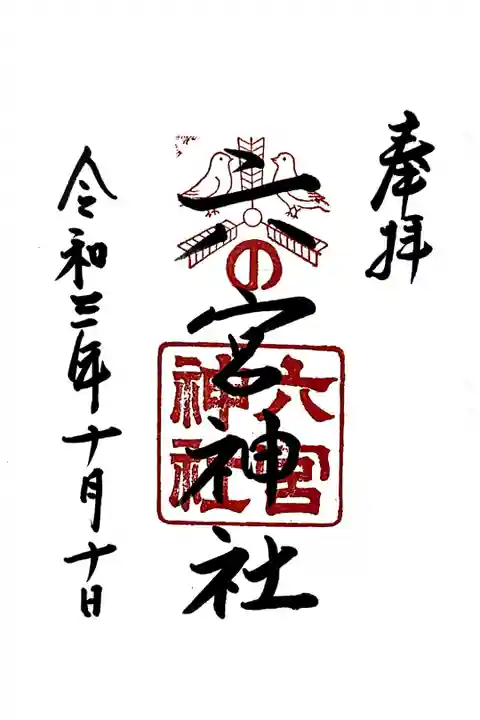 奉拝
六の宮神社
六宮
神社
令和三年十月十日